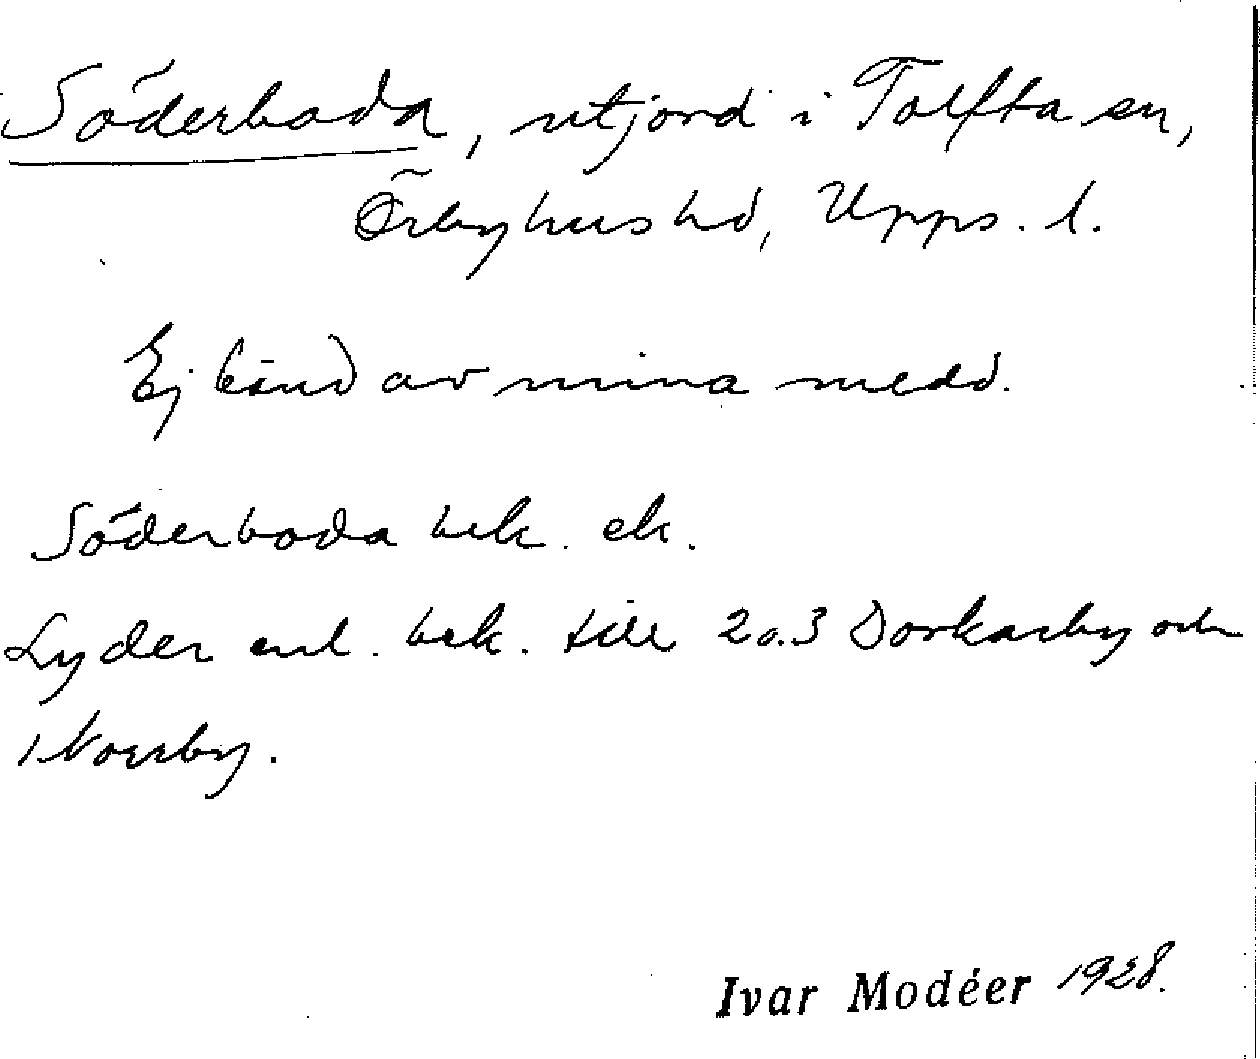 Söderboda, utjord i Tolfta sn,
Örbyhus hd, Upps. l.
Ej känd av mina medd.
Söderboda bek. ek.
Lyder enl. bek. till 2 o. 3 Dorkarby och
1 Norrby.
Ivar Modéer 1928.